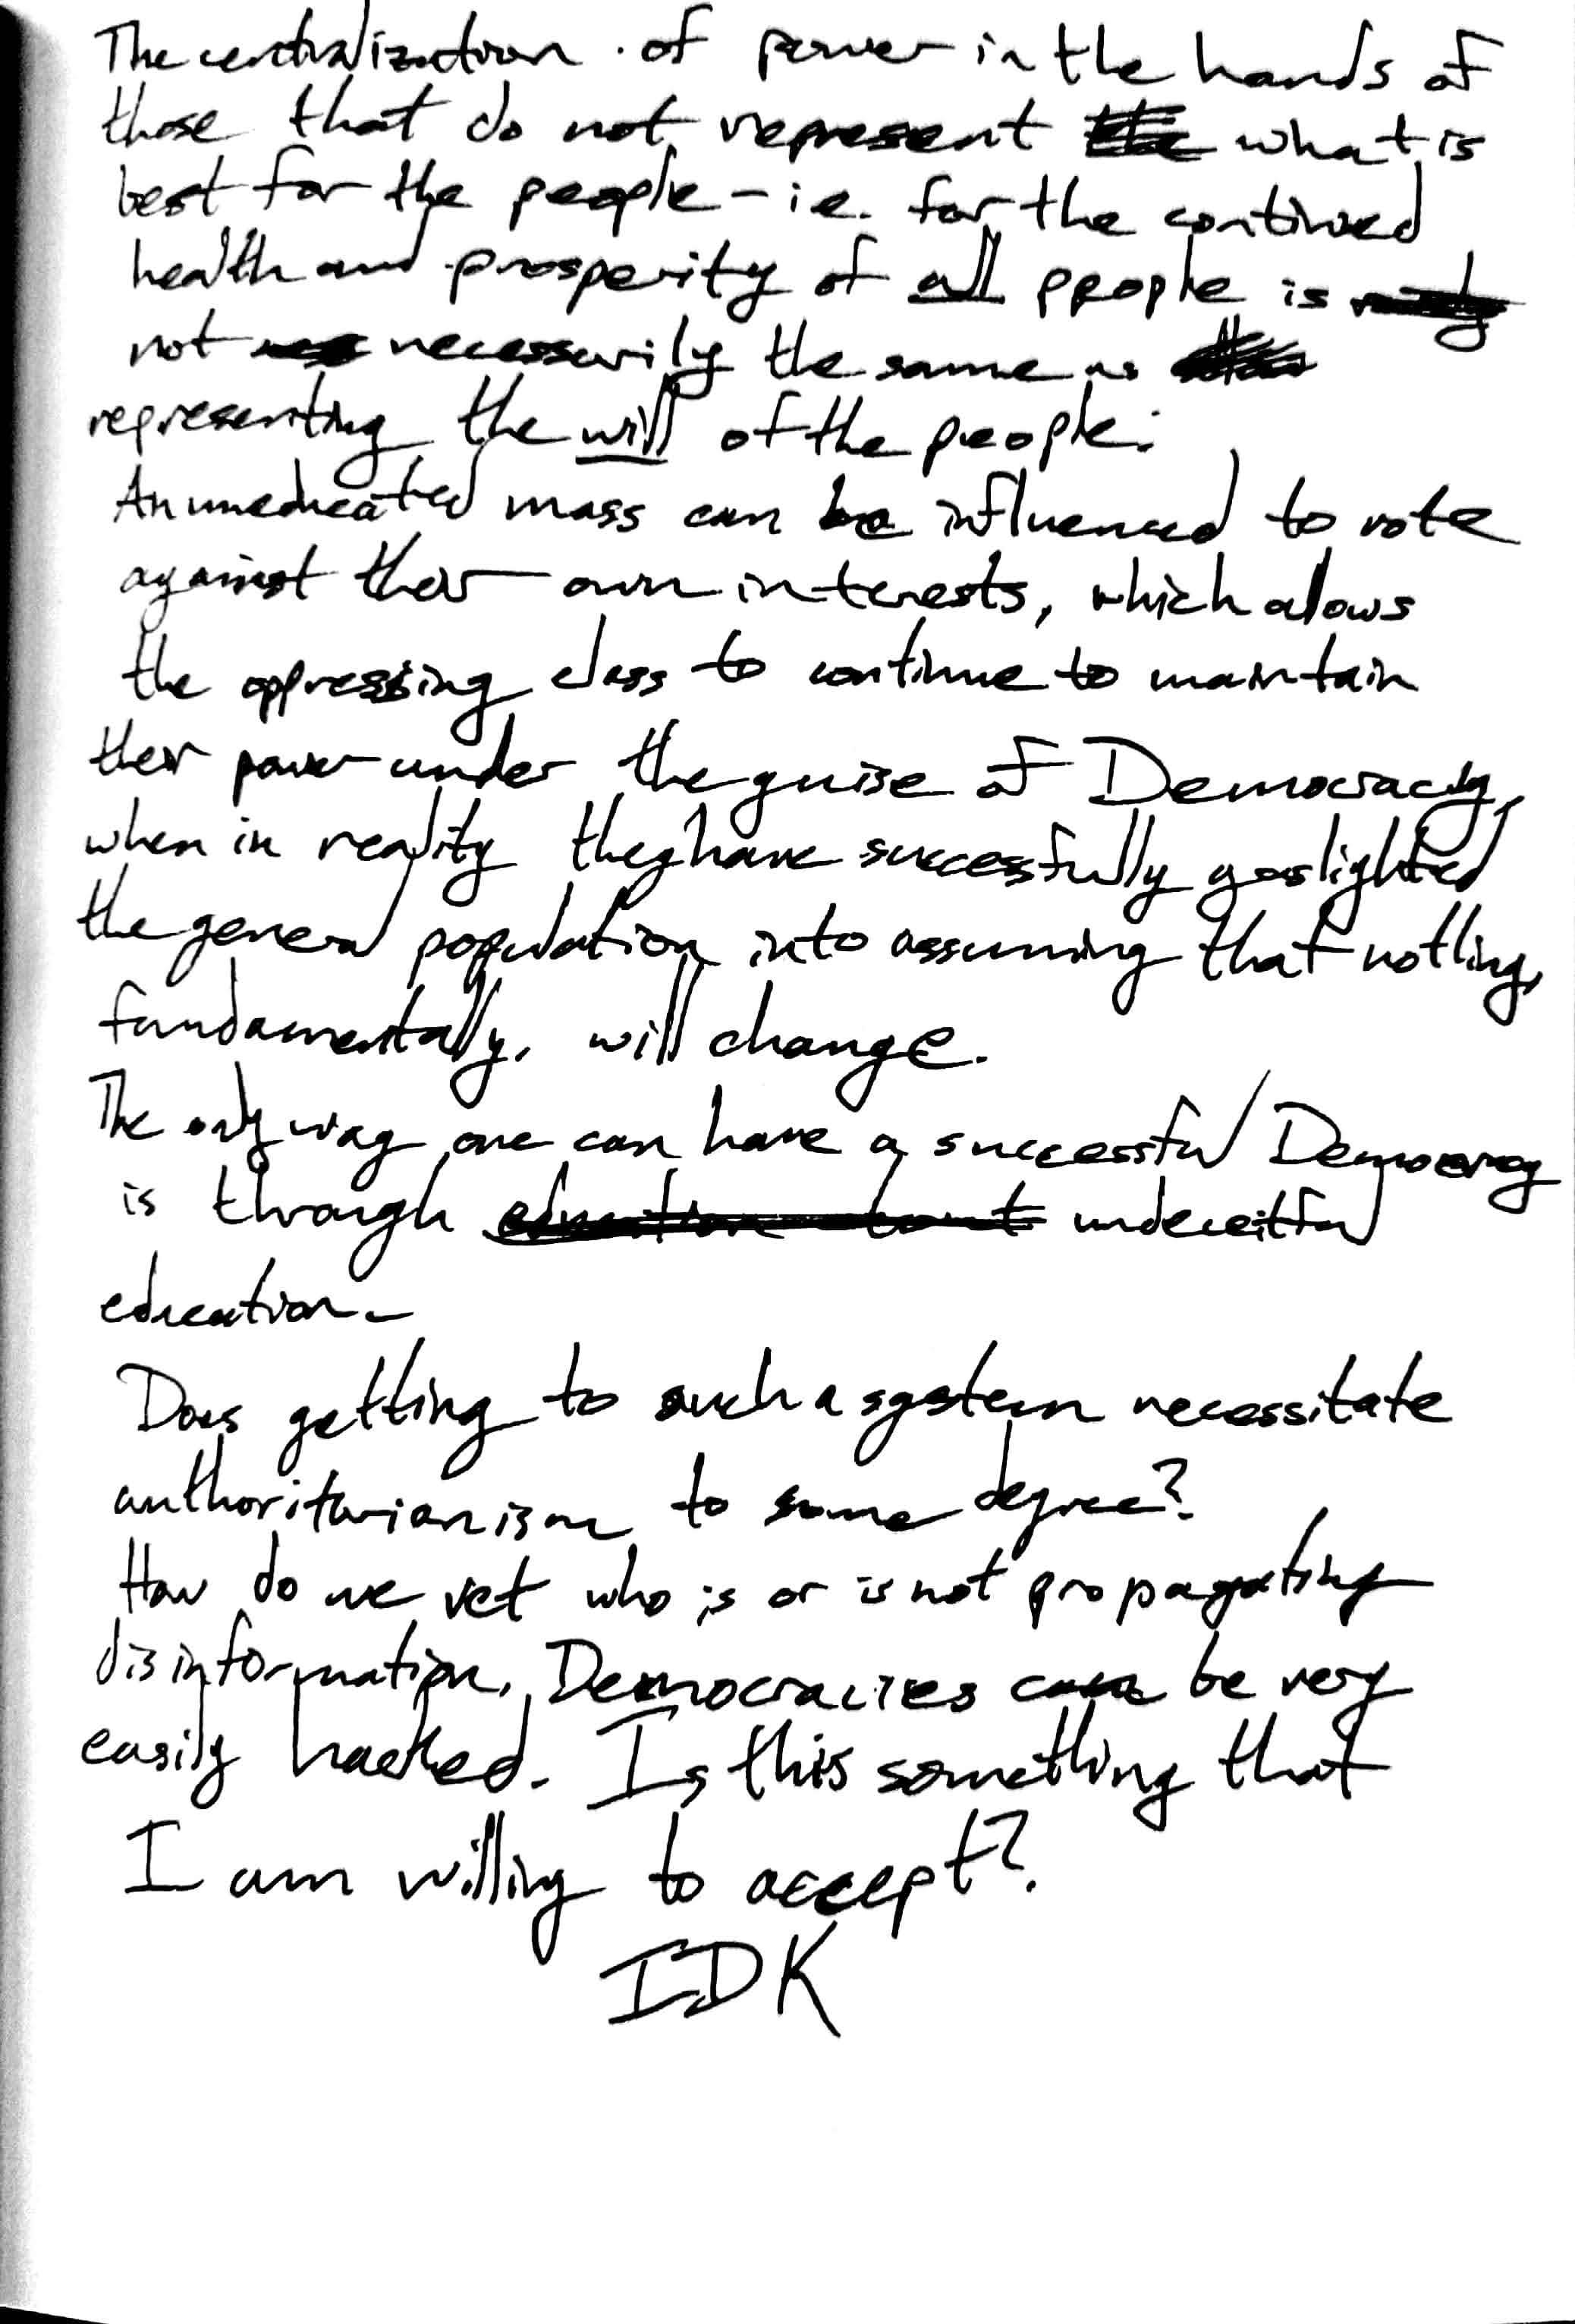 The centralization of power in the hands of
those that do not represent what is
best for the people - i.e. for the continued
health and prosperity of all people is
not necessarily the same as
representing the will of the people.
An uneducated mass can be influenced to vote
against their own interests, which alows
the oppressing class to continue to maintain
their power under the guise of Democracy,
when in reality they have successfully gaslighted
the general population into assuming that nothing,
fundamentally, will change.
The only way one can have a successful Democracy
is through undeceitful
education.
Does getting to such a system necessitate
authoritarianism to some degree?
How do we vet who is or is not propagating
disinformation. Democracies can be very
easily hacked. Is this something that
I am willing to accept?
IDK